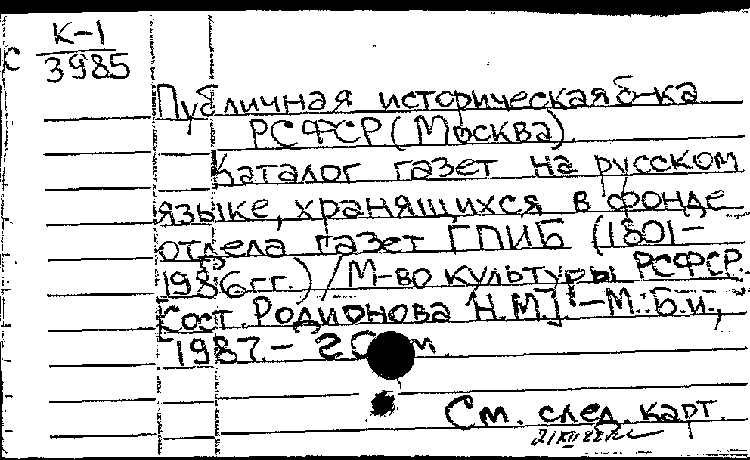 С К-1
3985
Публичная историческая б-ка
РСФСР (Москва).
Каталог газет на русском
языке, хранящихся в фонде
отдела газет ГПИБ (1801-
1986 гг.) / М-во культуры РСФСР.
[Сост. Родионова Н.М.]. - М.: Б.и.,
1987. - 20 см.
См. след. карт.